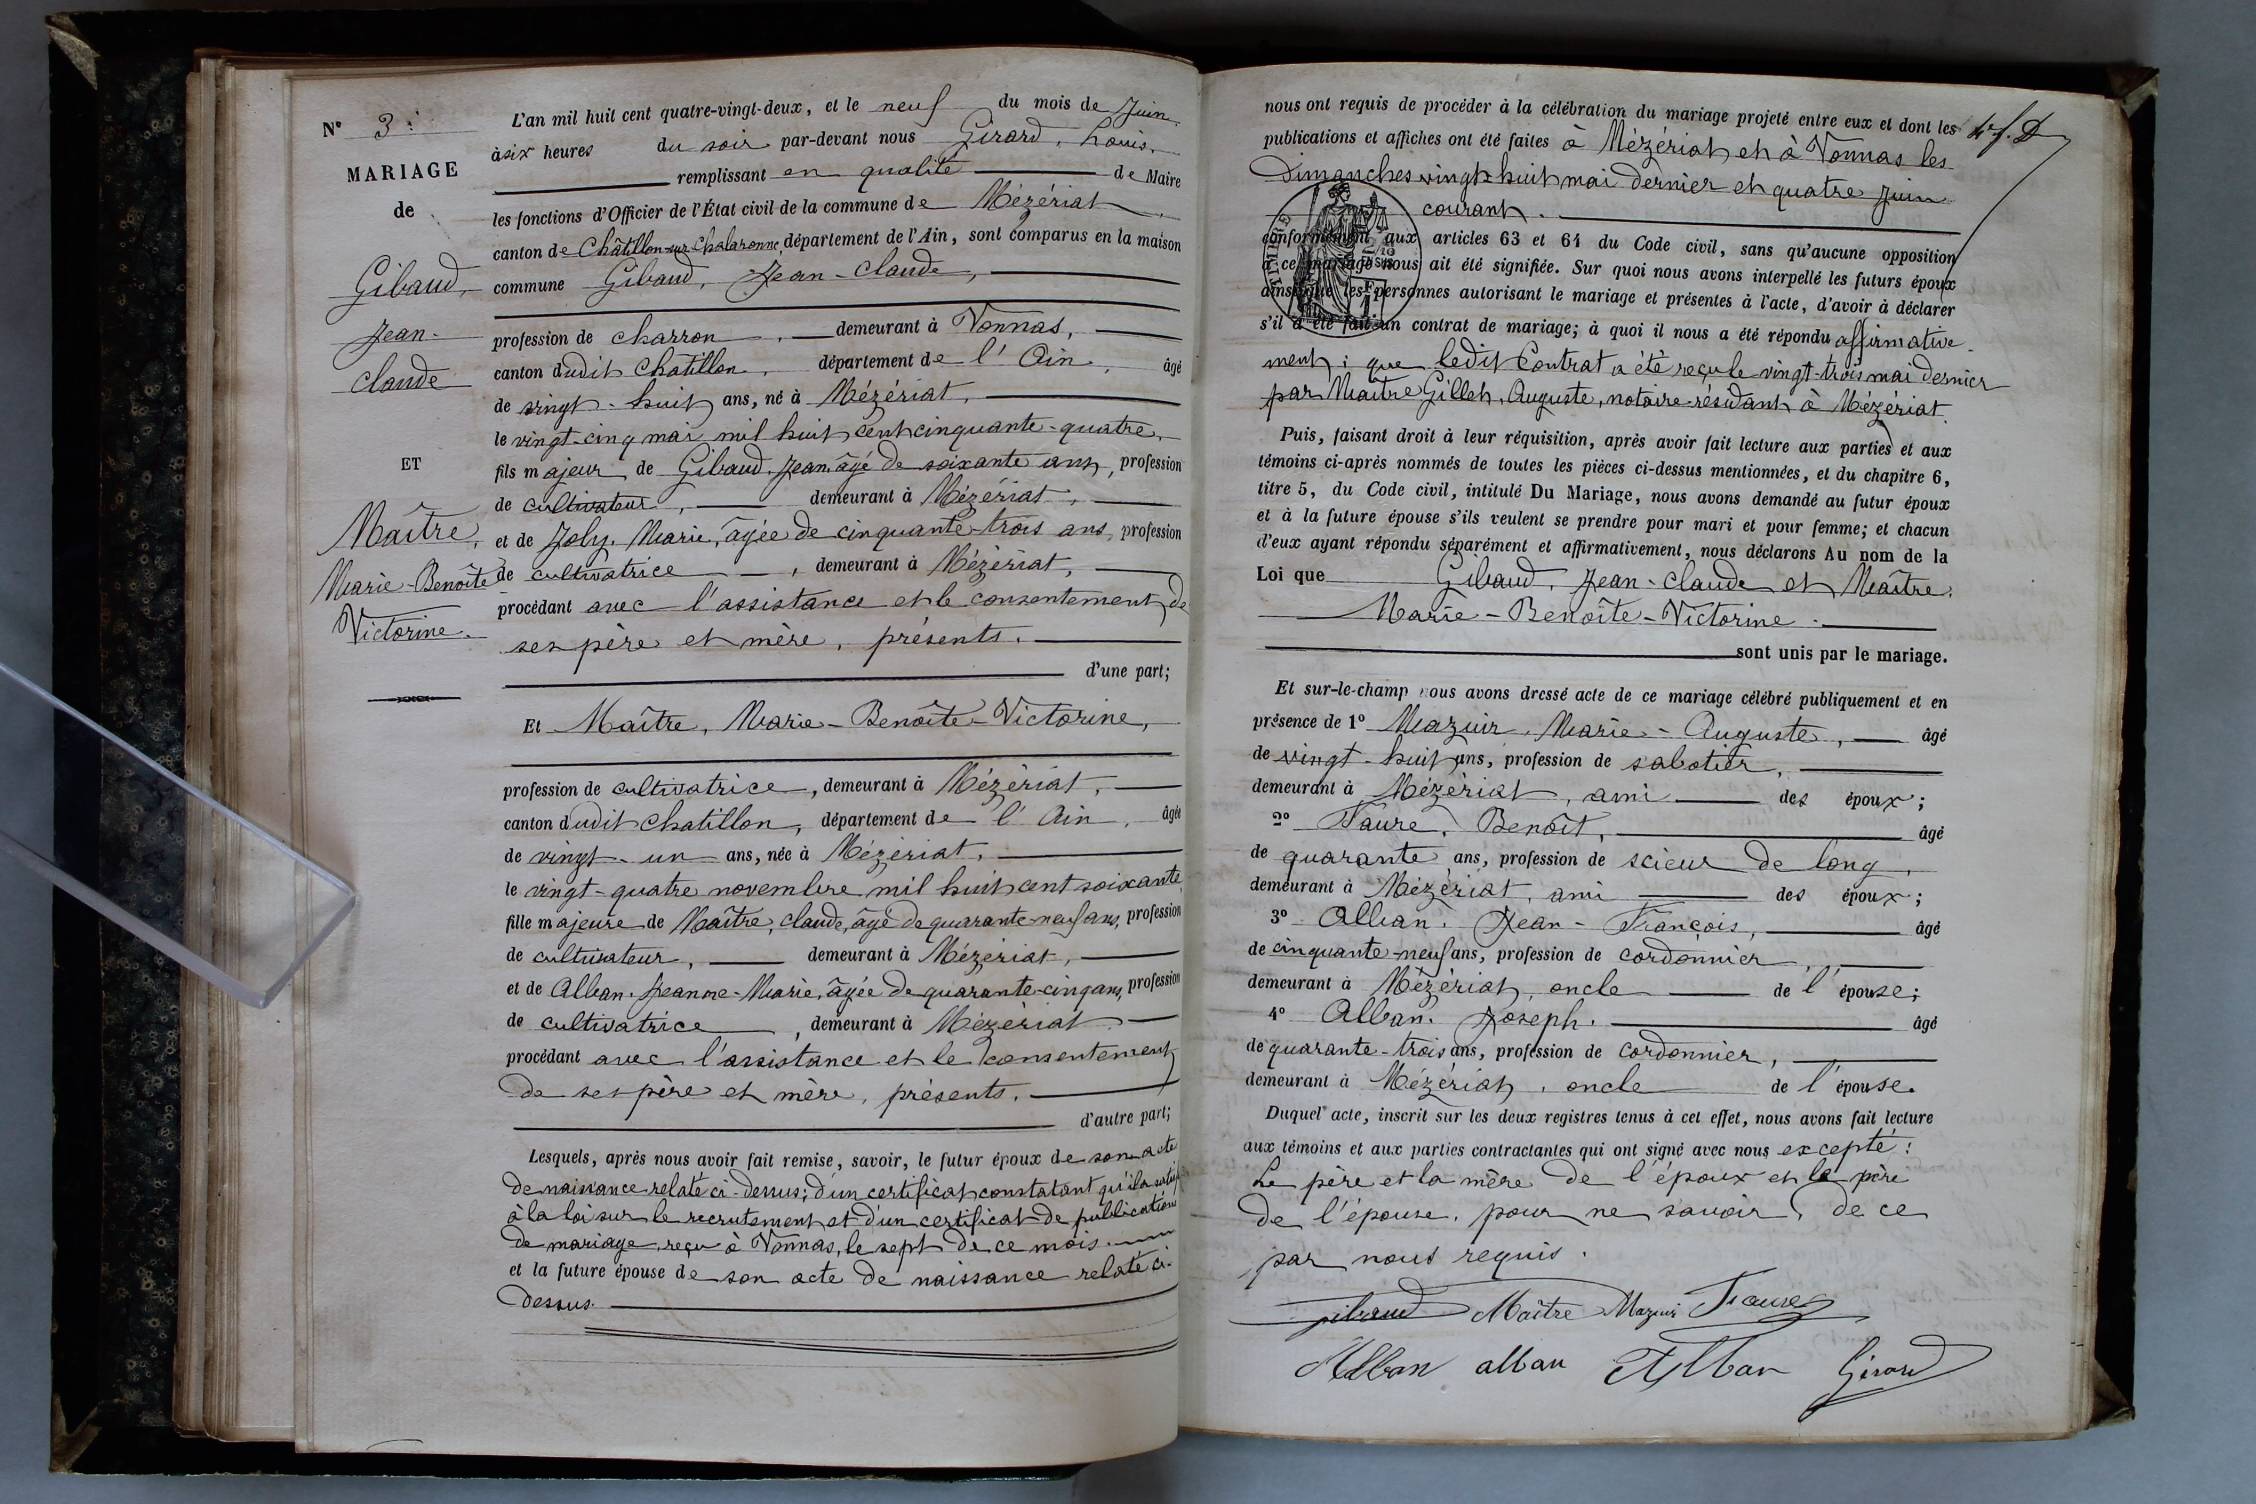 N° 3.
MARIAGE
de
Gibaud,
Jean-
Claude
ET
Maître,
Marie-Benoîte
Victorine.
L'an mil huit cent quatre-vingt-deux, et le neuf du mois de Juin
à six heures du soir par-devant nous Girard, Louis,
remplissant en qualité de Maire
les fonctions d'Officier de l'État civil de la commune de Mézériat,
canton de Châtillon-sur-Chalaronne, département de l'Ain, sont comparus en la maison
commune Gibaud, Jean-Claude,
profession de charron, demeurant à Vonnas,
canton dudit Chatillon, département de l'Ain, âgé
de vingt-huit ans, né à Mézériat,
le vingt-cinq mai mil huit cent cinquante-quatre,
fils majeur de Gibaud, Jean, âgé de soixante ans, profession
de cultivateur, demeurant à Mézériat,
et de Joly, Marie, âgée de cinquante-trois ans, profession
de cultivatrice, demeurant à Mézériat,
procédant avec l'assistance et le consentement de
ses père et mère, présents.
d'une part;
Et Maître, Marie-Benoîte-Victorine,
profession de cultivatrice, demeurant à Mézériat,
canton dudit Chatillon, département de l'Ain, âgée
de vingt-un ans, née à Mézériat,
le vingt-quatre novembre mil huit cent soixante,
fille majeure de Maître, Claude, âgé de quarante-neuf ans, profession
de cultivateur, demeurant à Mézériat,
et de Alban, Jeanne-Marie, âgée de quarante-cinq ans, profession
de cultivatrice, demeurant à Mézériat
procédant avec l'assistance et le consentement
de ses père et mère, présents.
d'autre part;
Lesquels, après nous avoir fait remise, savoir, le futur époux de son acte
de naissance relaté ci-dessus; d'un certificat constatant qu'il a satisf
à la loi sur le recrutement et d'un certificat de publications
de mariage, reçu à Vonnas, le sept de ce mois.
et la future épouse de son acte de naissance relaté ci-
dessus.
nous ont requis de procéder à la célébration du mariage projeté entre eux et dont les
publications et affiches ont été faites à Mézériat et à Vonnas les
Dimanches vingt-huit mai dernier et quatre Juin
courant.
conformément aux articles 63 et 64 du Code civil, sans qu'aucune opposition
à ce mariage nous ait été signifiée. Sur quoi nous avons interpellé les futurs époux
ainsi que les personnes autorisant le mariage et présentes à l'acte, d'avoir à déclarer
s'il a été fait un contrat de mariage; à quoi il nous a été répondu affirmative-
ment; que ledit Contrat a été reçu le vingt-trois mai dernier
par Maître Gillet, Auguste, notaire résidant à Mézériat.
Puis, faisant droit à leur réquisition, après avoir fait lecture aux parties et aux
témoins ci-après nommés de toutes les pièces ci-dessus mentionnées, et du chapitre 6,
titre 5, du Code civil, intitulé Du Mariage, nous avons demandé au futur époux
et à la future épouse s'ils veulent se prendre pour mari et pour femme; et chacun
d'eux ayant répondu séparément et affirmativement, nous déclarons Au nom de la
Loi que Gibaud, Jean-Claude et Maître,
Marie-Benoîte-Victorine.
sont unis par le mariage.
Et sur-le-champ nous avons dressé acte de ce mariage célébré publiquement et en
présence de 1° Mazuir, Marie-Auguste, âgé
de vingt-huit ans, profession de sabotier,
demeurant à Mézériat, ami des époux;
2° Faure, Benoît, âgé
de quarante ans, profession de scieur de long,
demeurant à Mézériat, ami des époux;
3° Alban, Jean-François, âgé
de cinquante-neuf ans, profession de cordonnier,
demeurant à Mézériat, oncle de l'épouse;
4° Alban, Joseph. âgé
de quarante-trois ans, profession de cordonnier,
demeurant à Mézériat, oncle de l'épouse.
Duquel acte, inscrit sur les deux registres tenus à cet effet, nous avons fait lecture
aux témoins et aux parties contractantes qui ont signé avec nous excepté:
Le père et la mère de l'époux et le père
de l'épouse, pour ne savoir, de ce
par nous requis.
Gibaud Maître Mazuir Faure
Alban alban Alban Girard